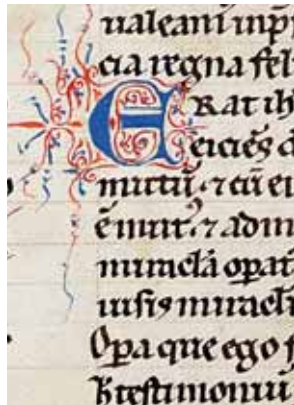 ualeam inp
cia regna fel
ERat ih
eicie̅s d
mutu̅. ⁊ cu̅ ei
e̅ mut. ⁊ adm
miracl̅a opat
uisis miracl
Opa que ego f
testimoniu̅